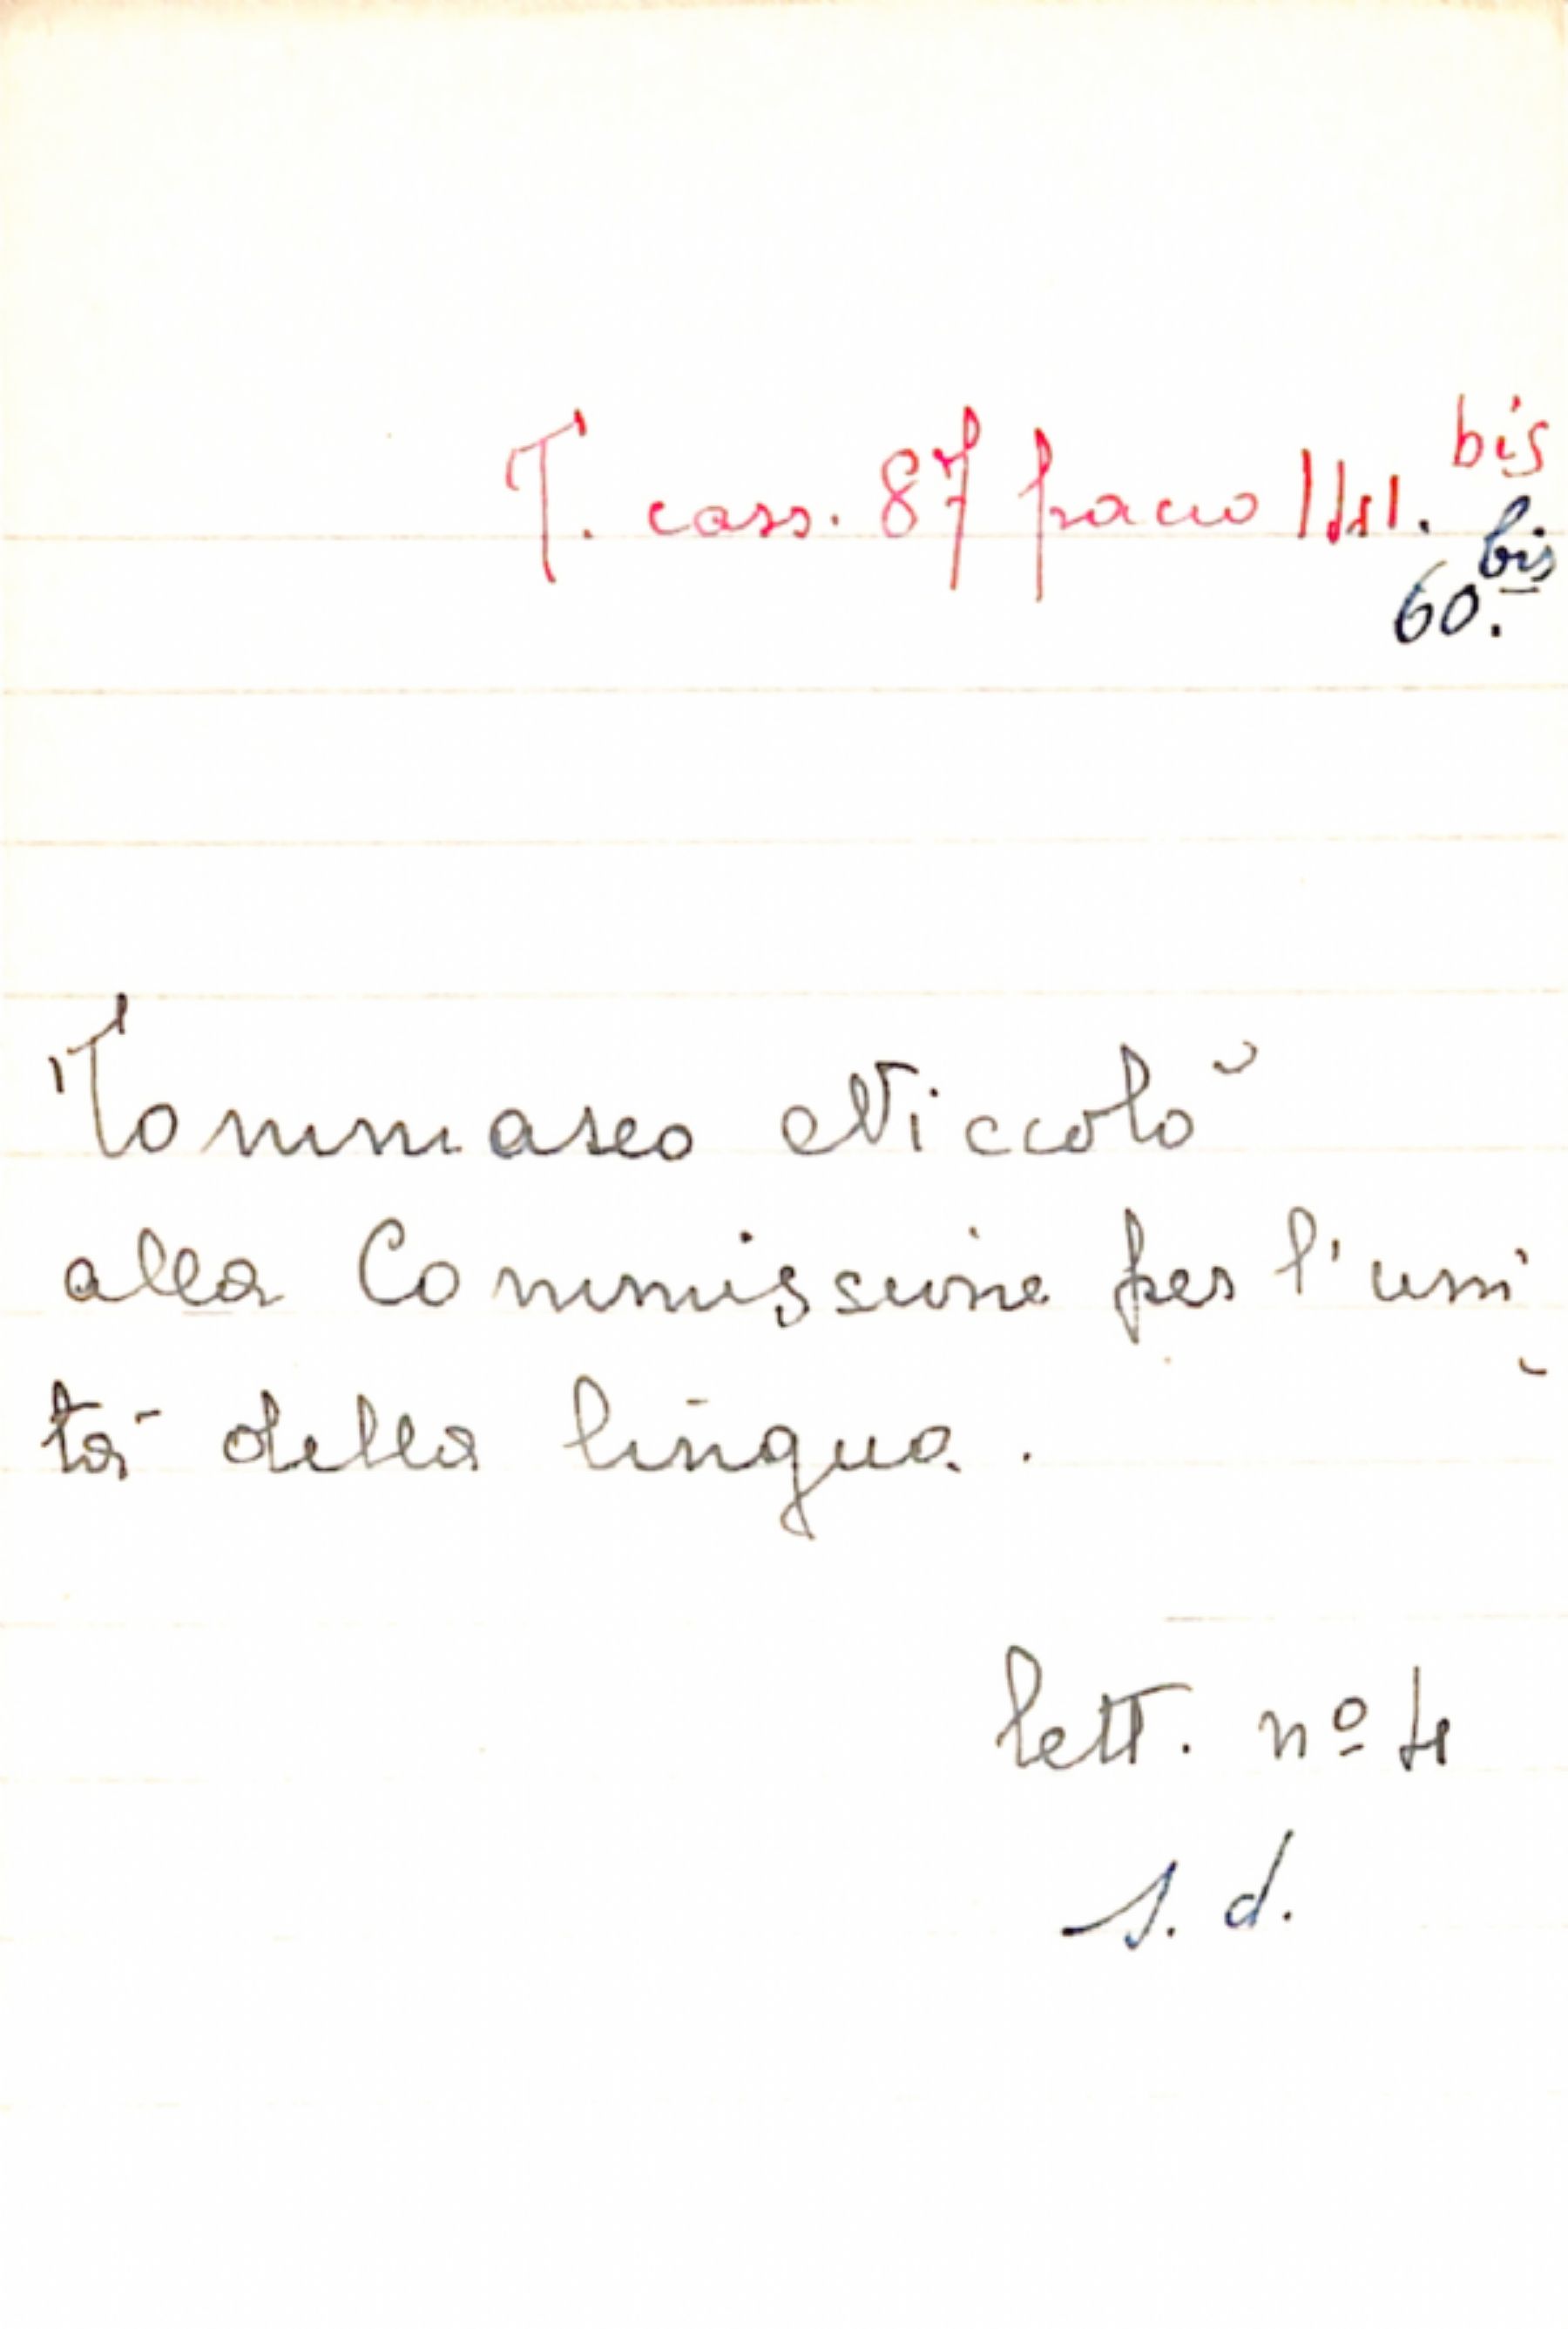 T. cass. 87 pacco bis
60. bis
Tommaseo Niccolò
alla Commissione per l'uni
tà della lingua.
lett. nº 4
s. d.